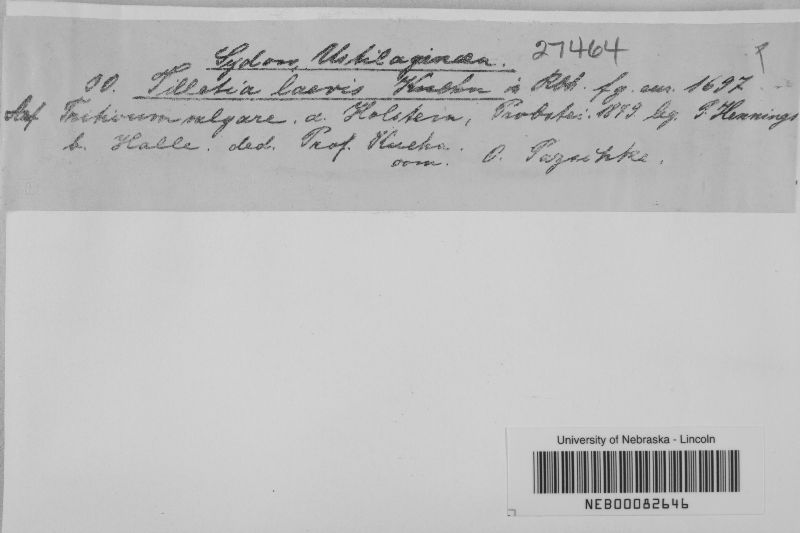 Sydow, Ustilagineen. 27464
90. Tilletia laevis Kuehn in Rbh. fg. eur. 1697
Auf Triticum vulgare. a. Holstein, Probstei. 1889. leg. P. Hennings
b. Halle. ded. Prof. Kuehn.
com. O. Pazschke.
University of Nebraska - Lincoln
NEB00082646